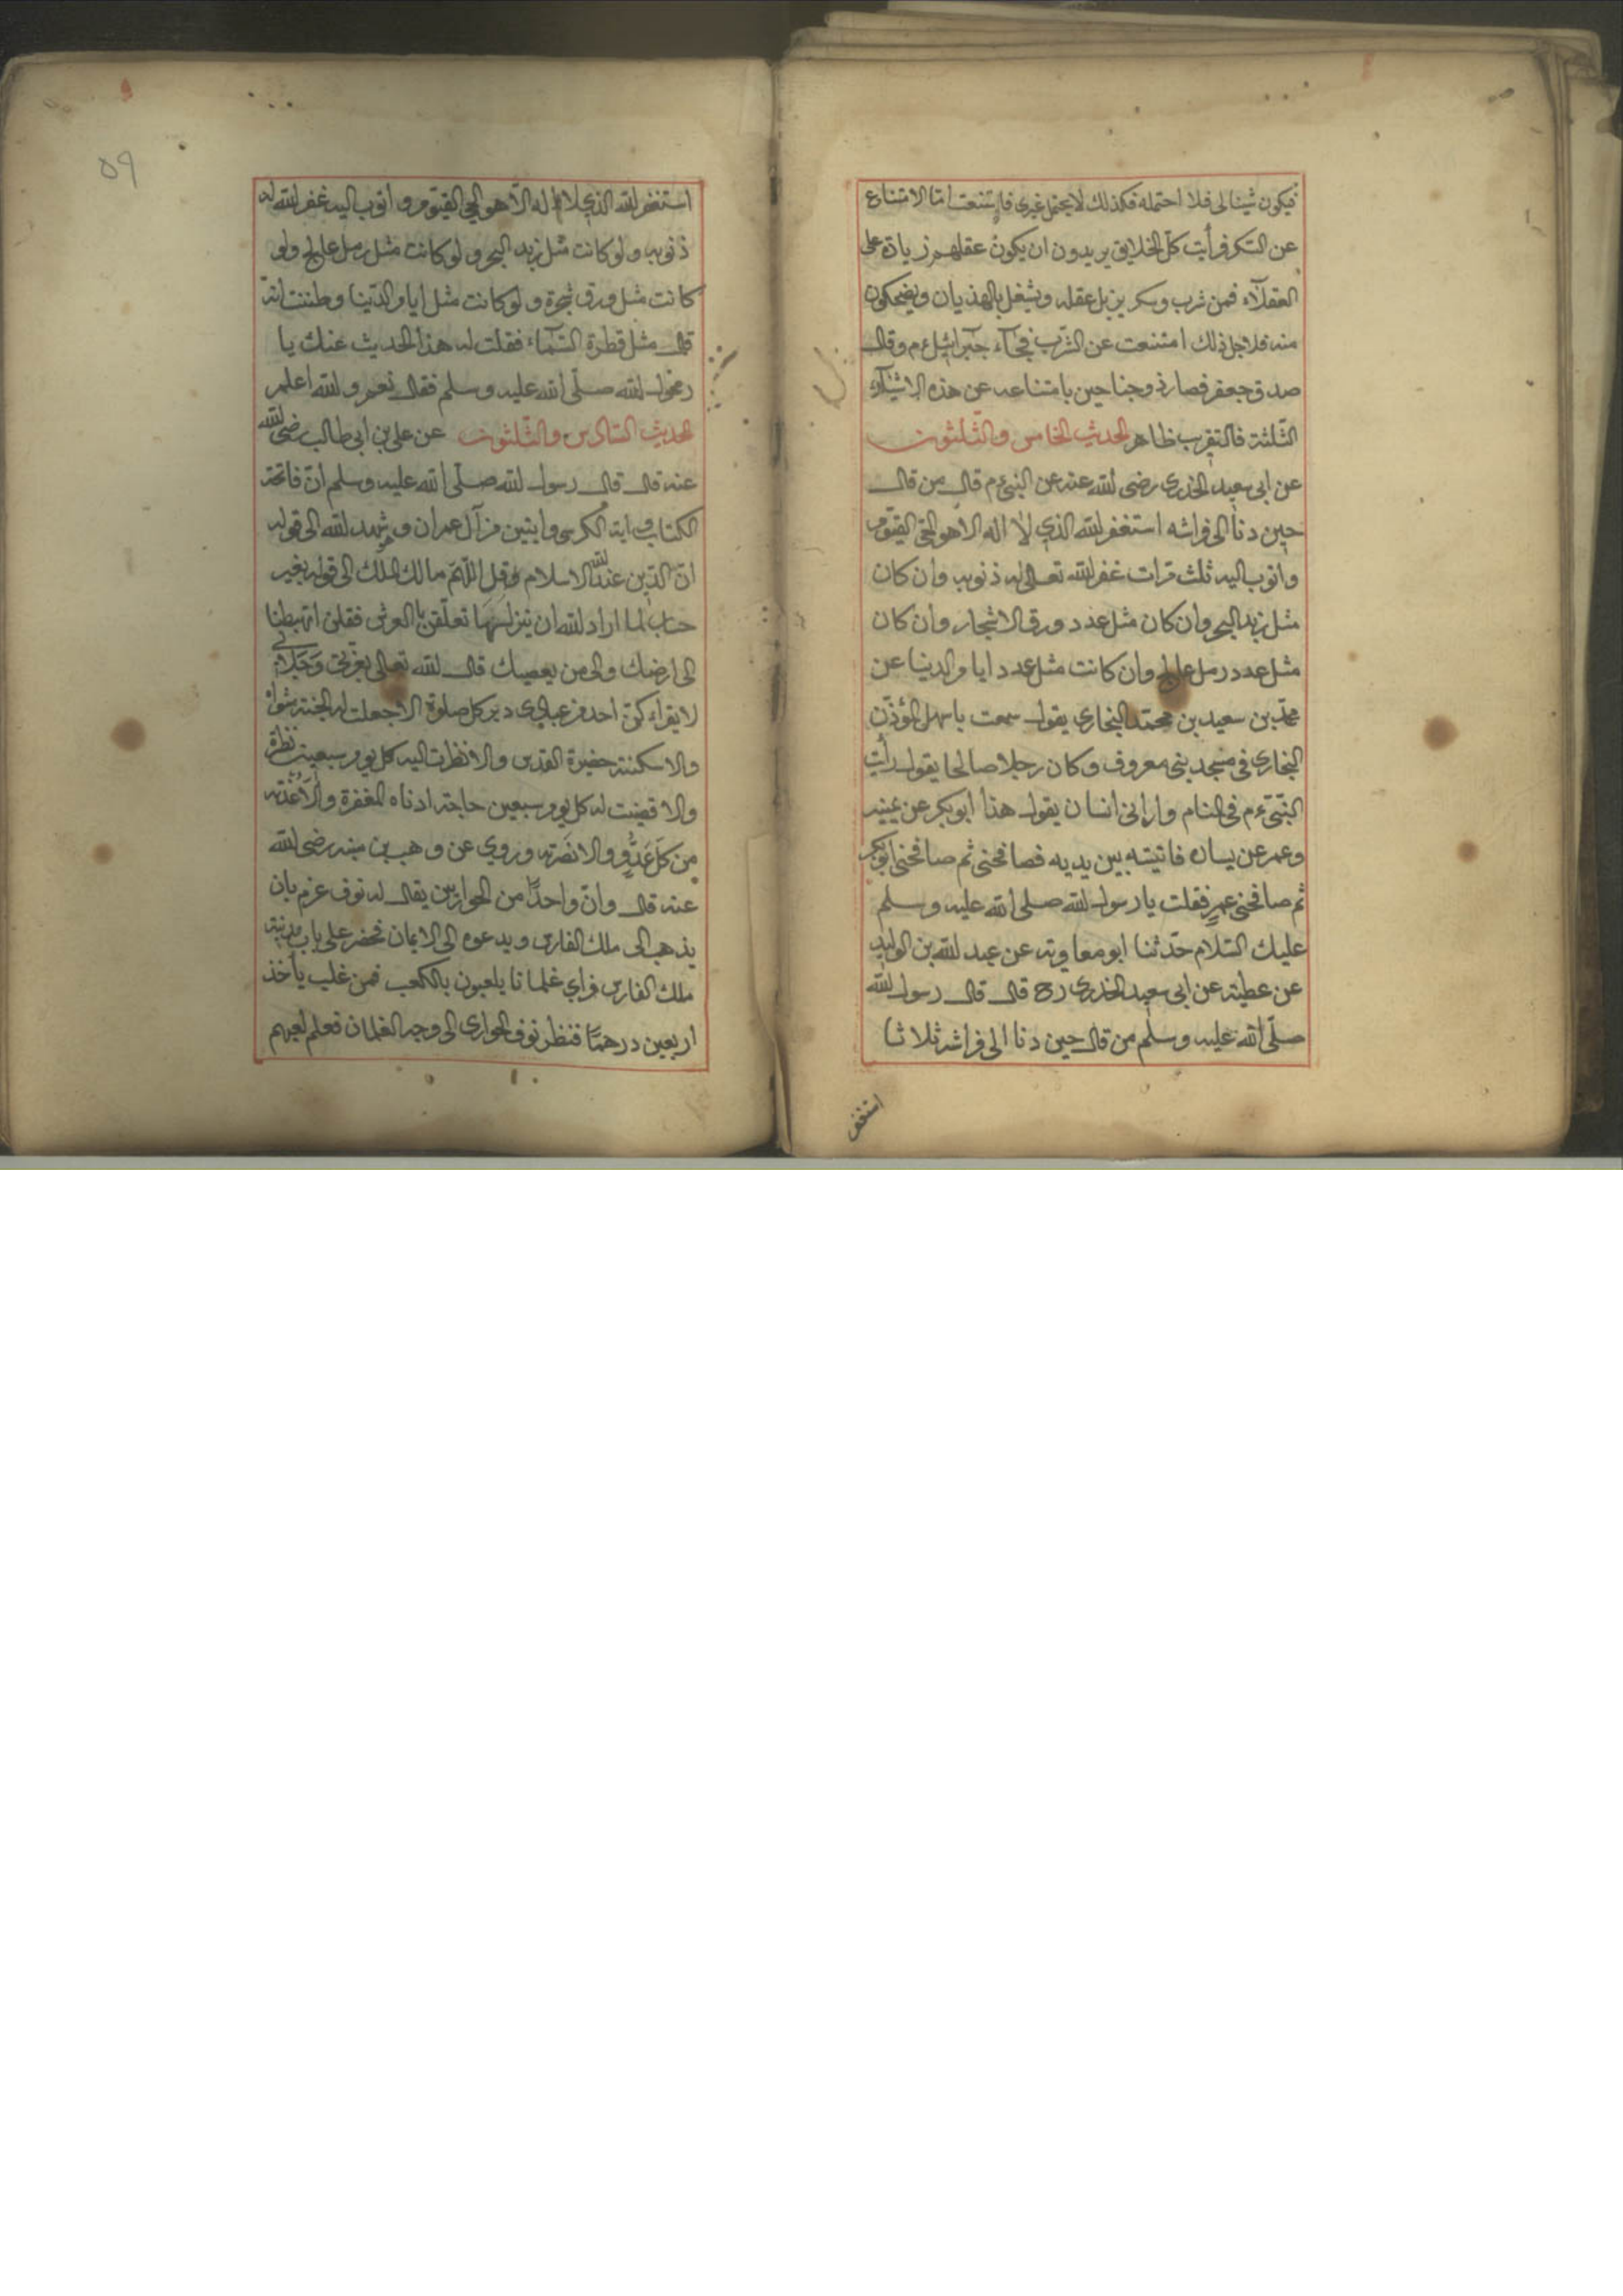 فيكون شينا لى فلا احتمله فكذلك لا يحتمل غيرى فامتنعت امّا الامتناع
عن السّكر فرأيت كلّ الخلايق يريدون ان يكون عقلهم زيادة على
العقلآء فمن شرب وسكر يزيل عقله ويشغل بالهذيان ويضحكون
منه فلاجل ذلك امتنعت عن الشّرب فجآء جبرآئيل ءم وقال
صدق جعفر فصار ذو جناحين بامتناعه عن هذه الاشيآء
الثّلثة فالتقرب ظاهر الحديث الخامس والثّلثون
عن ابى سعيد الخدرى رضى الله عنه عن النبىّ ءم قال من قال
حين دنا الى فراشه استغفر الله الذي لا اله الا هو الحىّ القيّوم
واتوب اليه ثلث مرّات غفر الله تعالى له ذنوبه وان كان
مثل زبد البحر وان كان مثل عدد ورق الاشجار وان كان
مثل عدد رمل عالج وان كانت مثل عدد ايام الدنيا عن
محمّد بن سعيد بن محمّد البخارى يقول سمعت باسهل المؤذّن
البخارى فى مسجد بنى معروف وكان رجلا صالحا يقول رأيت
النّبىّ ءم فى المنام وارانى انسان يقول هذا ابو بكر عن يمينه
وعمر عن يساره فاتيته بين يديه فصافحنى ثم صافحنى ابو بكر
ثم صافحنى عمر فقلت يا رسول الله صلى الله عليه وسلم
عليك السّلام حدّثنا ابو معاوية عن عبد الله بن الوليد
عن عطية عن ابى سعيد الخدرى رح قال قال رسول الله
صلّى الله عليه وسلّم من قال حين دنا الى فراشه ثلاثا
استغفر
استغفر الله الذي لا اله الّا هو الحي القيّوم واتوب اليه غفر الله له
ذنوبه ولو كانت مثل زبد البحر ولو كانت مثل رمل عالج ولو
كانت مثل ورق شجرة ولو كانت مثل ايام الدّنيا وظننت انّه
قال مثل قطرة السّمآء فقلت له هذا الحديث عنك يا
رسول الله صلّى الله عليه وسلم فقال نعم والله اعلم
الحديث السّادس والثّلثون عن على بن ابى طالب رضى الله
عنه قال قال رسول الله صلّى الله عليه وسلم انّ فاتحة
الكتاب واية الكرسى وايتين من آل عمران وشهد الله الى قوله
انّ الدّين عند الله الاسلام وقل اللّهمّ مالك الملك الى قوله بغير
حساب لما اراد الله ان ينزلهما تعلّقن بالعرش فقلن اتهبطنا
الى ارضك والى من يعصيك قال الله تعالى بعزّتى وجلالى
لا يقراءكنّ احد من عبادى دبر كل صلوة الا جعلت له الجنة مثواه
والا سكنته حضيرة القدس والا نظرت اليه كل يوم سبعين نظرة
والا قضيت له كل يوم سبعين حاجة ادناه المغفرة والا عذته
من كلّ عدوّ والا نصرته وروي عن وهب بن منبه رضى الله
عنه قال وانّ واحدًا من الحواريّين يقال له نوف عزم بان
يذهب الى ملك الفارس ويدعوه الى الايمان فحضر على باب مدينة
ملك الفارس فراي غلمانا يلعبون بالكعب فمن غلب يأخذ
اربعين درهمًا فنظر نوف الحوارى الى وجه الغلمان فعلم لعبهم
٥٩